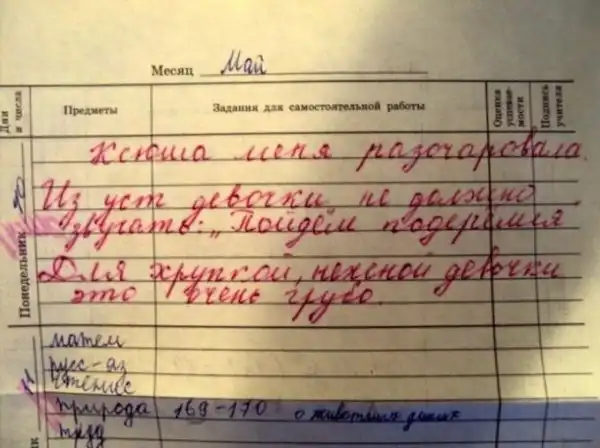 Месяц Май
Дни и числа
Предметы
Задания для самостоятельной работы
Оценка успевае-мости
Подпись учителя
Понедельник
Ксюша меня разочаровала.
Из уст девочки не должно
звучать: „Пойдём подеремся
Для хрупкой, нежной девочки
это очень грубо.
матем
русс-яз
чтение
природа 169-170 о животных
труд